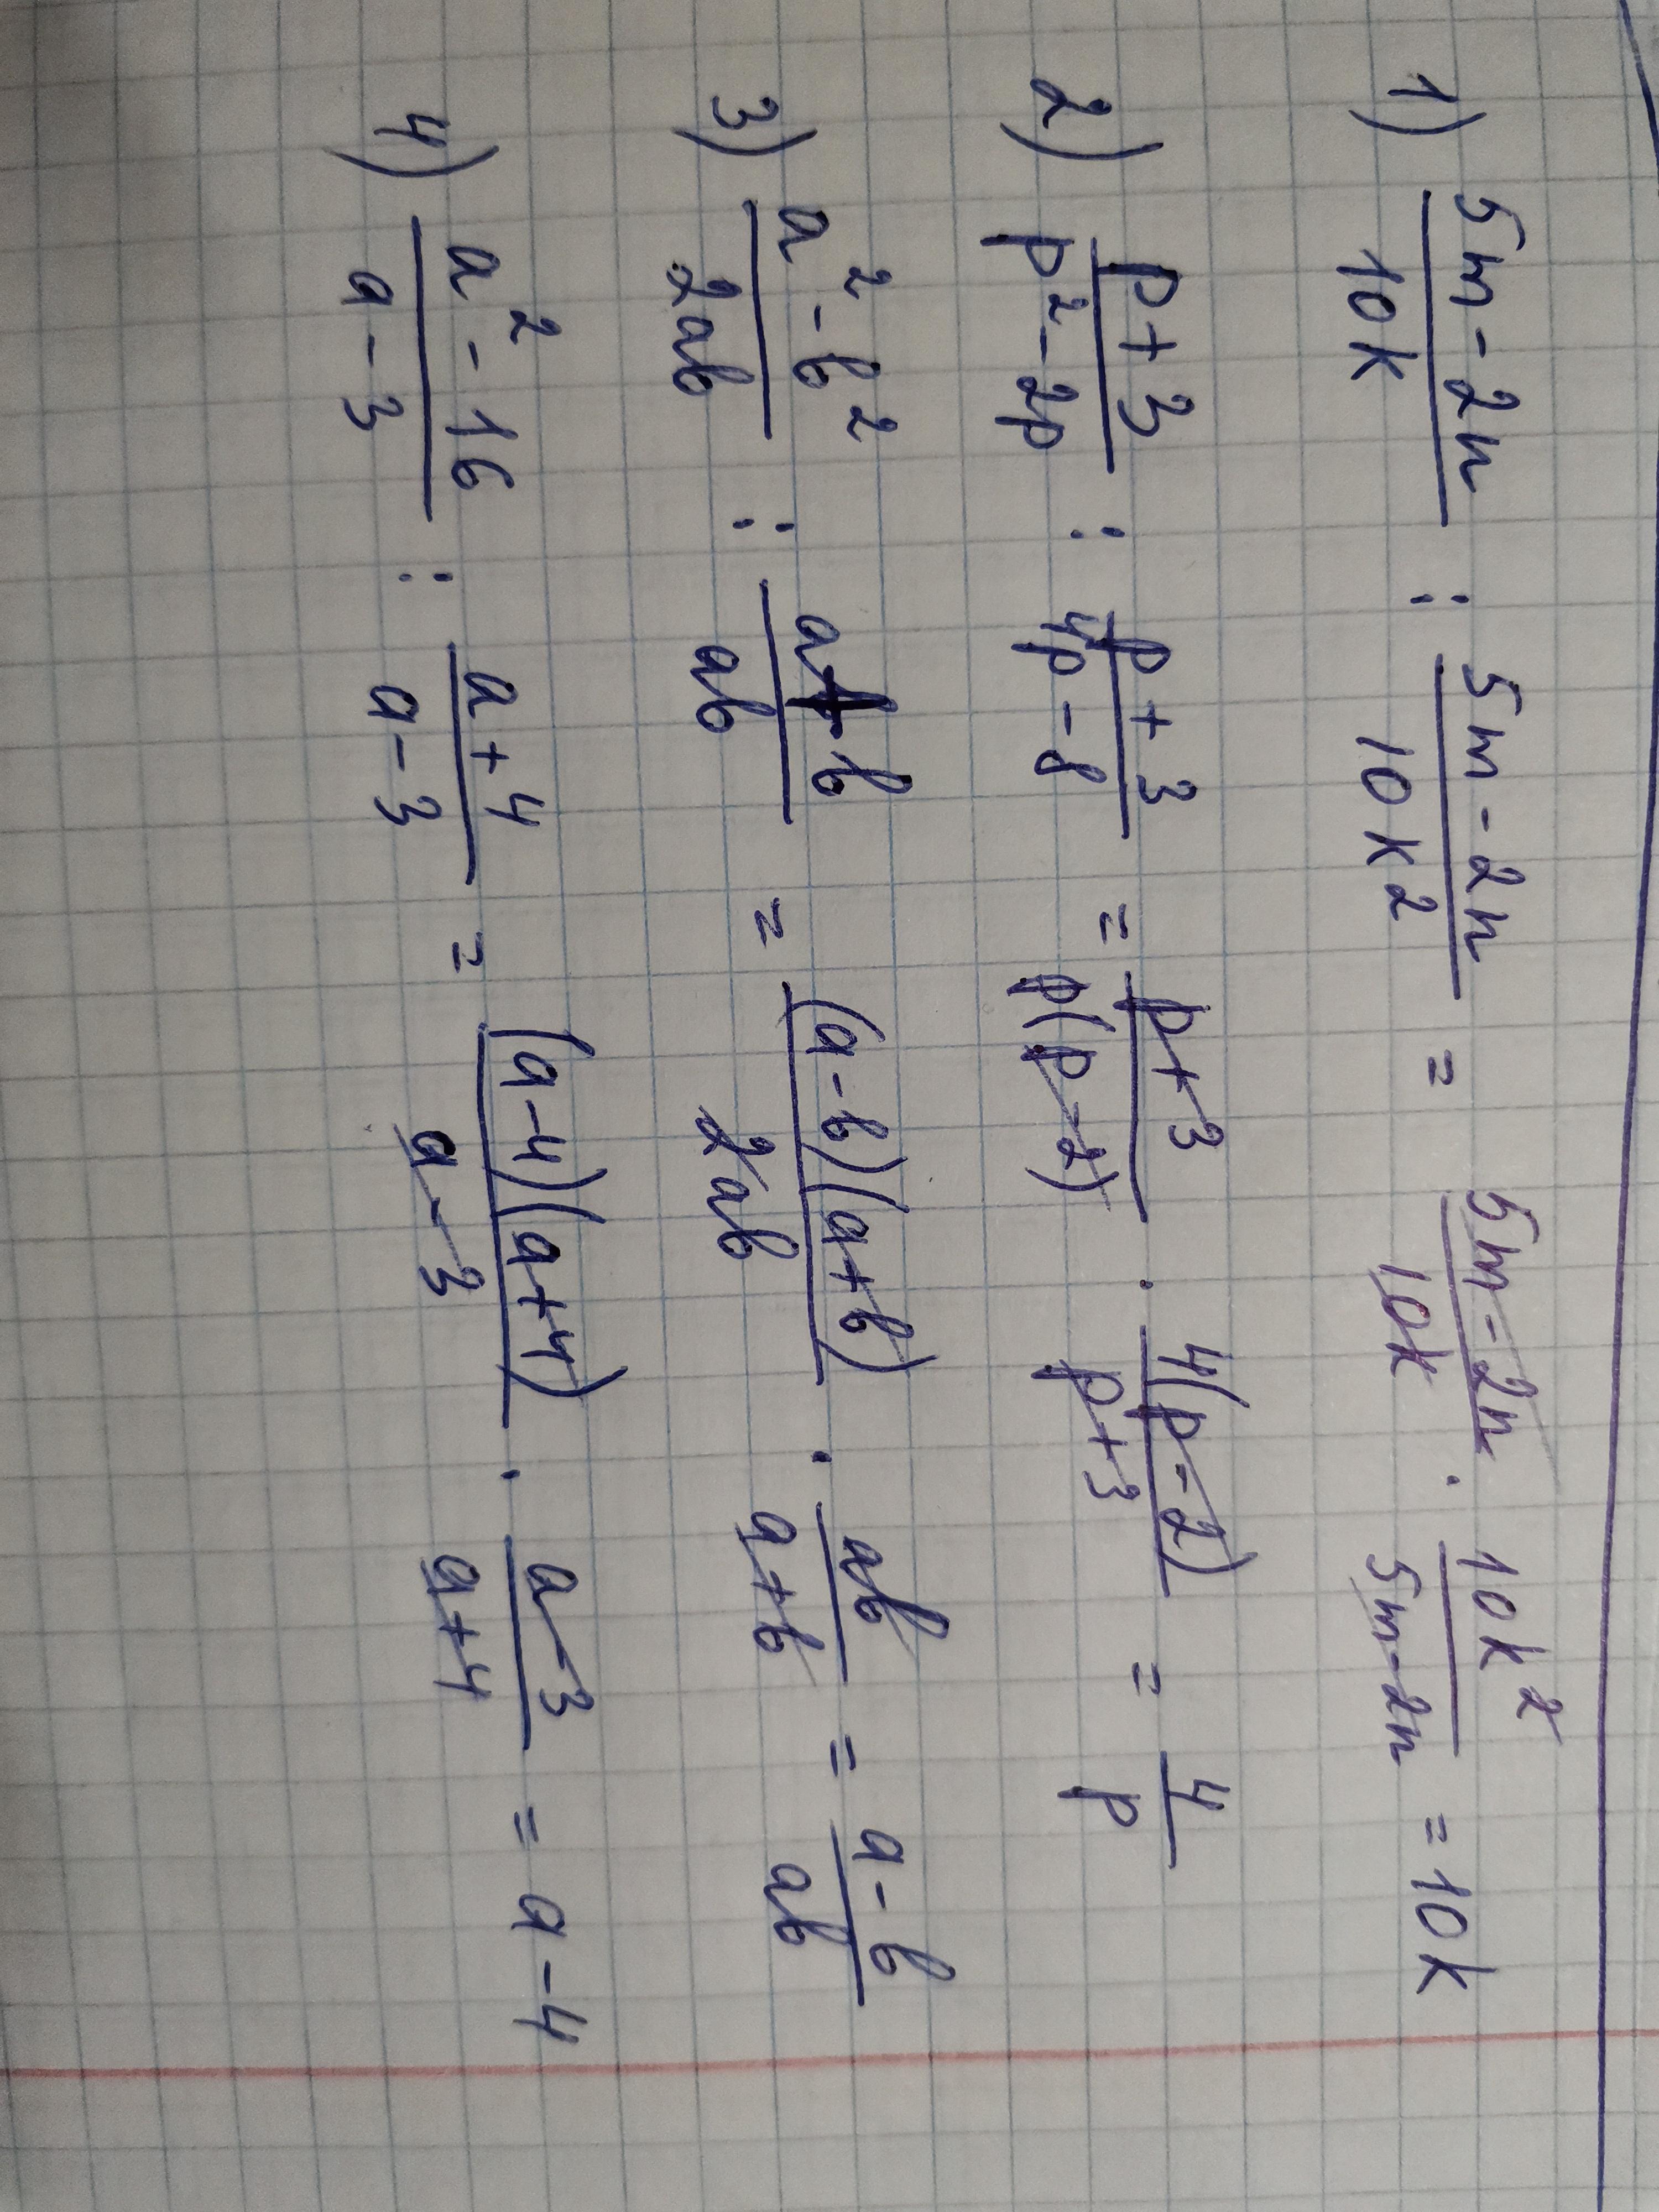 1) (5m-2n)/(10k) : (5m-2n)/(10k²) = (5m-2n)/(10k) · (10k²)/(5m-2n) = 10k
2) (p+3)/(p²-2p) : (p+3)/(4p-8) = (p+3)/(p(p-2)) · (4(p-2))/(p+3) = 4/p
3) (a²-b²)/(2ab) : (a+b)/(ab) = ((a-b)(a+b))/(2ab) · (ab)/(a+b) = (a-b)/(ab)
4) (a²-16)/(a-3) : (a+4)/(a-3) = ((a-4)(a+4))/(a-3) · (a-3)/(a+4) = a-4